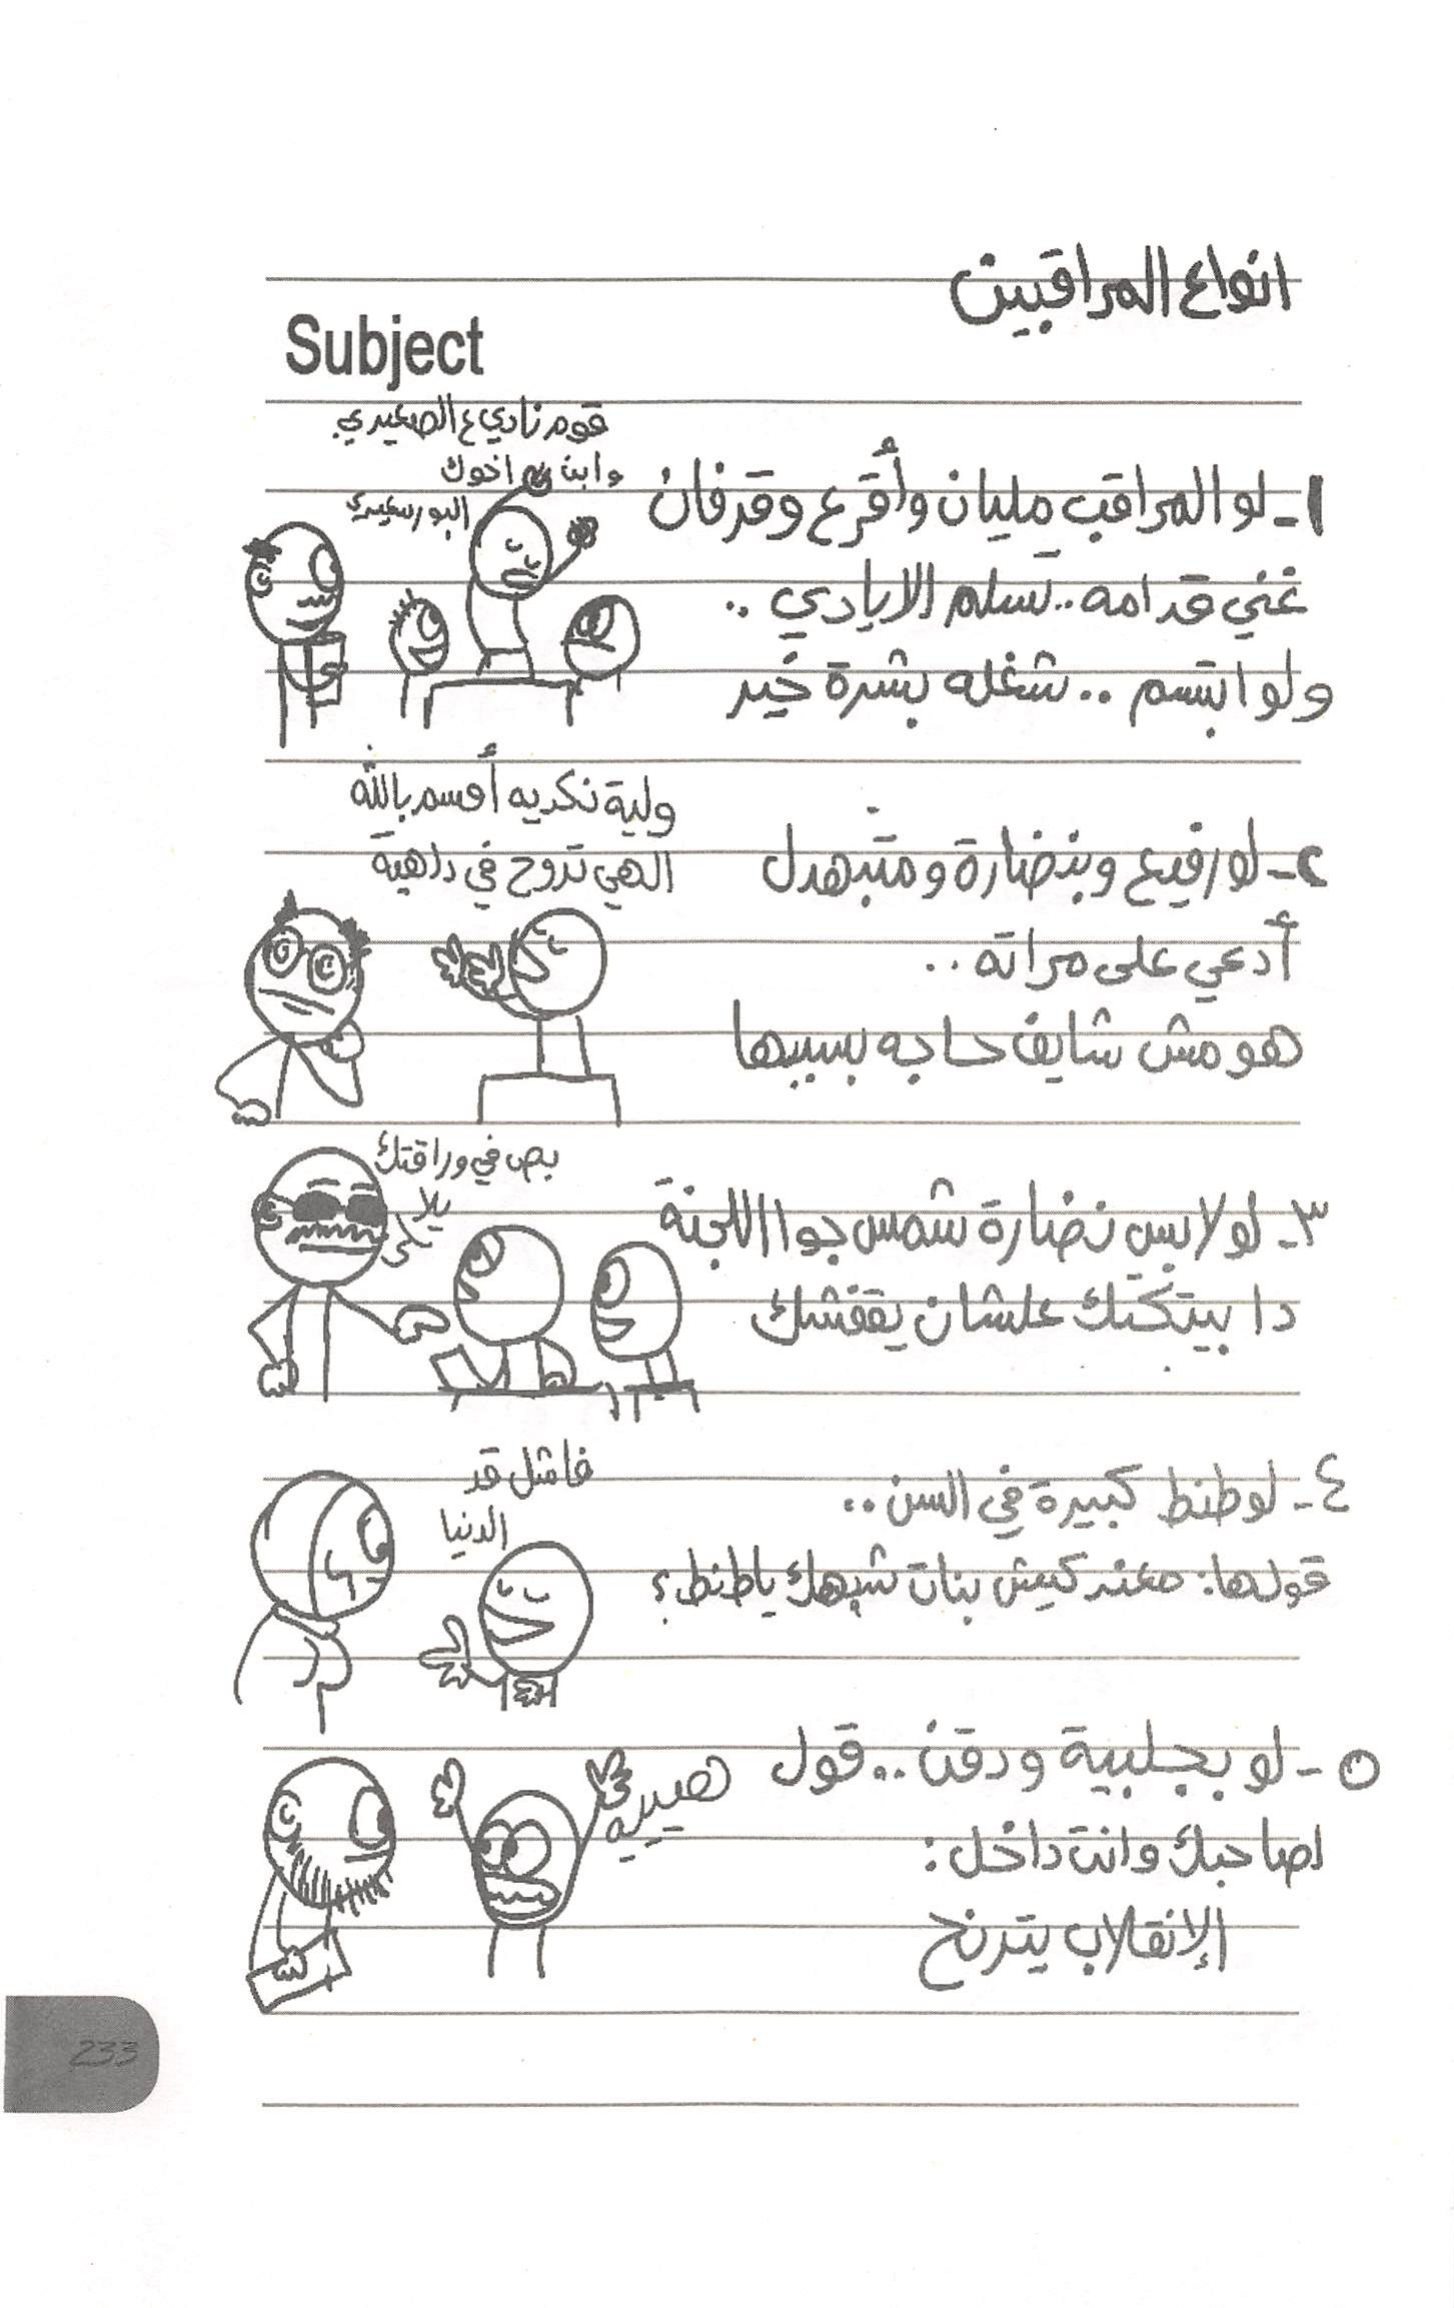 انواع المراقبين
Subject
قوم نادي ع الصعيدي
وابن اخوك
البورسعيدي
١- لو المراقب مليان وأقرع وقرفان
غني قدامه.. تسلم الايادي ..
ولو ابتسم .. شغله بشرة خير
ولية نكديه أقسم بالله
الهي تروح في داهية
٢- لو رفيع وبنضارة ومتبهدل
أدعي على مراته ..
هو مش شايف حاجه بسببها
بص في وراقتك
يلا
٣- لو لابس نضارة شمس جوا اللجنة
دا بيتكتك علشان يقفشك
فاشل قد
الدنيا
٤- لو طنط كبيرة في السن ..
قولها: معندكيش بنات شبهك يا طنط؟
٥- لو بجلبية ودقن .. قول
هيييه
لصاحبك وانت داخل:
الإنقلاب يترنح
233